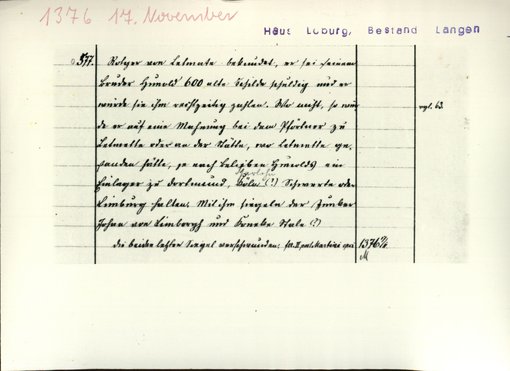 1376 17. November
Haus Loburg, Bestand Langen
577. Rotger von Letmate bekundet, er sei seinem
Bruder Hunold 600 alte Schilde schuldig und er
würde sie ihm rechtzeitig zahlen. Wo nicht, so wür-
de er auf eine Mahnung bei dem Pförtner zu
vgl. 63.
Letmette oder an der Stätte, wo Letmette ge-
standen hätte, je nach Belieben Hunolds ein
Einlager zu Dortmund, (?) Schwerte oder
Limburg halten. Mit ihm siegeln der Junker
Johan von Limborgh und Stale (?)
Die beiden letzten Siegel verschwunden. 1376